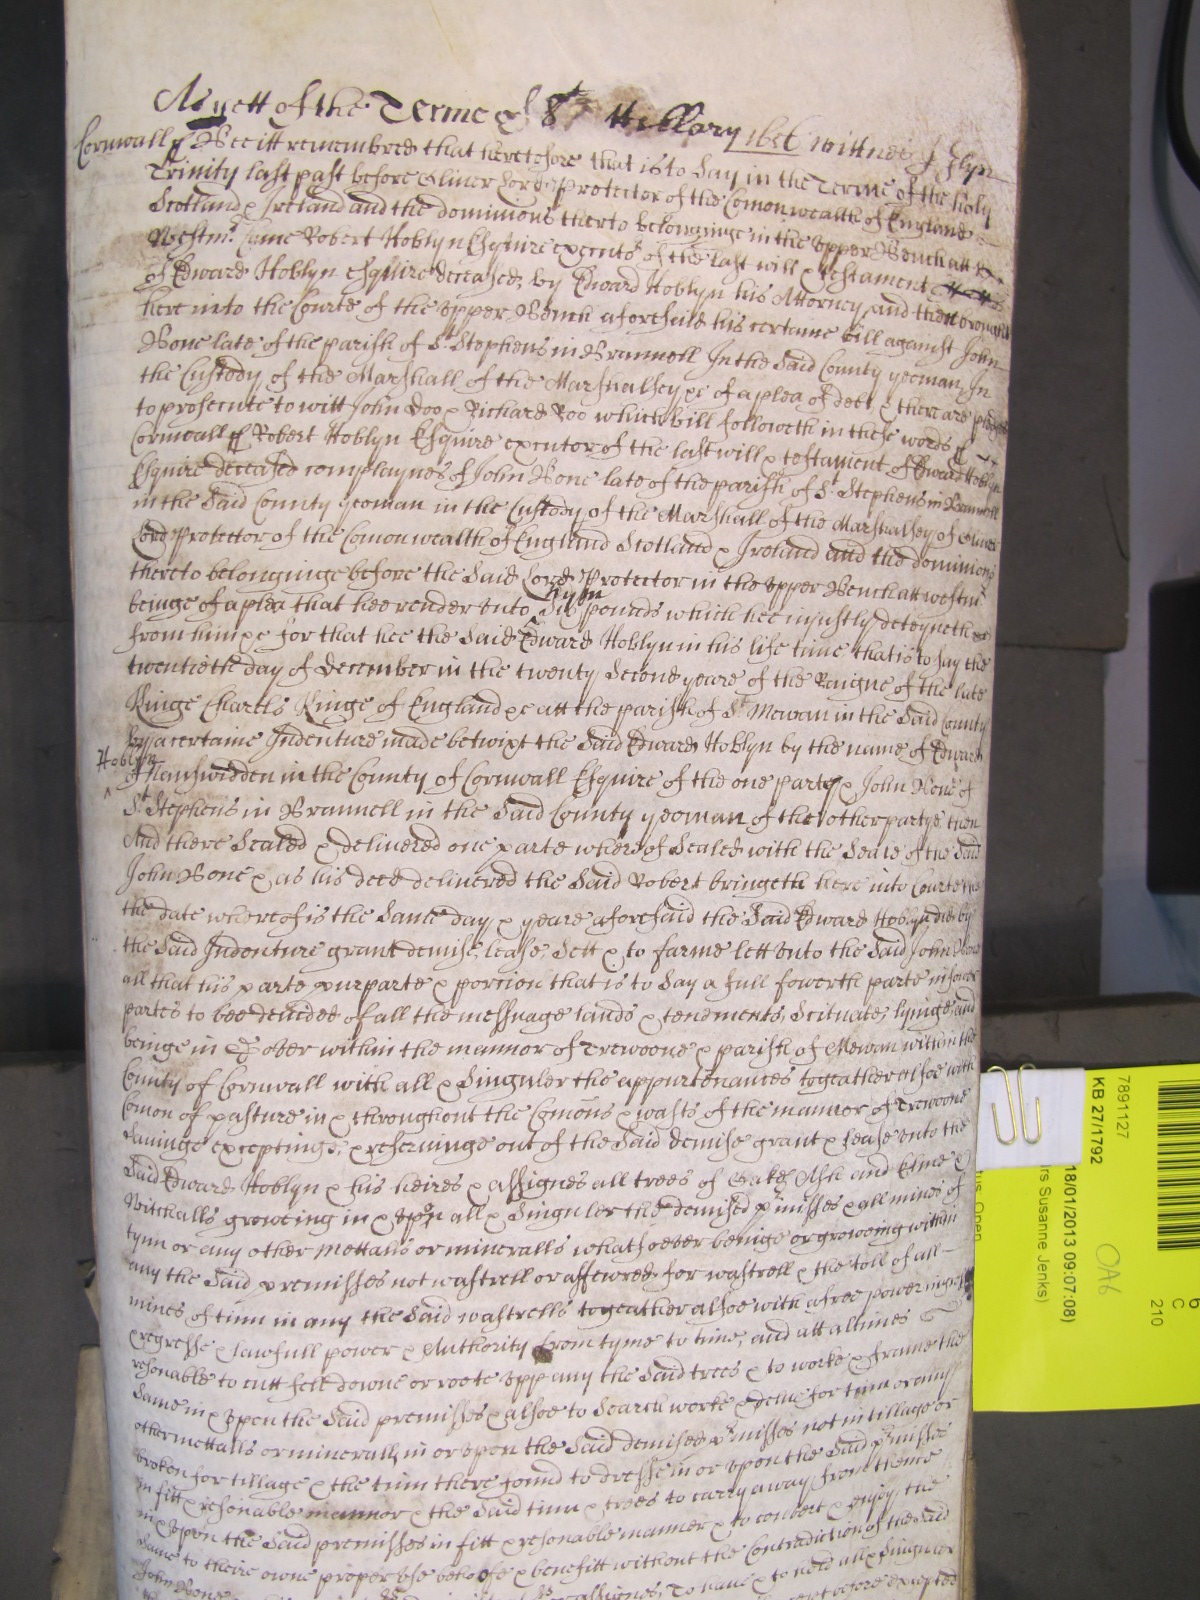 As yett of the Terme of St Hillary 1656 wittnes J Glyn
Cornwall ss Bee itt remembred that heretofore that is to Say in the Terme of the holy
Trinity last past before Oliver Lord Protector of the Comonwealth of England
Scotland & Ireland and the dominions thereto belonginge in the upper Bench att
Westmr. Came Robert Hoblyn Esquire executor of the last will & testament
of Edward Hoblyn esquire deceased, by Edward Hoblyn his Attorney, and then brought
here into the Courte of the upper Bench aforesaid his certaine bill against John
Bone late of the parish of St. Stephens in Brannell In the Said County yeoman, In
the Custody of the Marshall of the Marshalsey &c of a plea of debt & there are pledges
to prosecute to witt John Doo & Richard Roo which bill followeth in these words ss
Cornwall ss Robert Hoblyn Esquire executor of the last will & testament of Edward Hoblyn
Esquire deceased complaynes of John Bone late of the parish of St. Stephens in Brannell
in the Said County yeoman in the Custody of the Marshall of the Marshalsey of Oliver
Lord Protector of the Comonwealth of England Scotland & Ireland and the dominions
thereto belonginge before the Said Lord Protector in the upper Bench att westmr
beinge of a plea that hee render unto him Six pounds which hee injustly deteyneth
from him &c for that hee the Said Edward Hoblyn in his life time that is to Say the
twentieth day of December in the twenty Second yeare of the Raigne of the late
Kinge Charles Kinge of England &c att the parish of St Mewan in the Said County
by a certaine Indenture made betwixt the Said Edward Hoblyn by the name of Edward
Hoblyn
of Nanswidden in the County of Cornwall Esquire of the one parte & John Bone of
St Stephens in Brannell in the Said County yeoman of the other partye then
And there Sealed & delivered one parte whereof Sealed with the Seale of the Said
John Bone & as his deed delivered the Said Robert bringeth here into Courte
the date whereof is the Same day & yeare aforesaid the Said Edward Hoblyn did by
the Said Indenture grant demise, lease, Sett & to farme lett unto the Said John Bone
all that his parte purparte & portion that is to Say a full fowerth parte in fower
partes to bee devided of all the messuage lands & tenements, Scituate, lyinge, and
beinge in ober within the mannor of Trewoone & parish of Mewan within the
County of Cornwall with all & Singuler the appurtenances togeather alsoe with
Comon of pasture in & throughout the Comons & wasts of the mannor of Trewoone
Savinge exceptinge, & reserveinge out of the Said demise grant & lease unto the
Said Edward Hoblyn & his heires & assignes all trees of Oake, Ash and Elme &
Witchalls groweing in & upon all & Singuler the demised pmisses & all mines of
tynn or any other Mettalls or mineralls whatsoever beinge or groweing within
any the Said premisses not wastrell or assewred for wastrell & the toll of all
mines of tinn in any the Said wastrells togeather alsoe with a free power ingresse
& regresse & lawfull power & Authority from tyme to time, and att all times
resonable to cutt fell downe or roote upp any the Said trees & to worke & frame the
Same in & upon the Said premisses & alsoe to Search worke & delve for tinn or any
other mettalls or mineralls in or upon the Said demised pmisses not in tillage or
broken for tillage & the tinn there found to dresse in or upon the Said pmisses
in fitt & resonable mannor & the Said tinn & trees to carry away from thence
in & upon the Said premisses in fitt & resonable manner & to convert & enjoy, the
Same to theire owne proper use behoofe & benefitt without the Contradiction of the Said
John Bone assignes, To have & to hold all & Singuler
before excepted
7891127
KB 27/1792
18/01/2013 09:07:08)
rs Susanne Jenks)
OA6
6
C
210